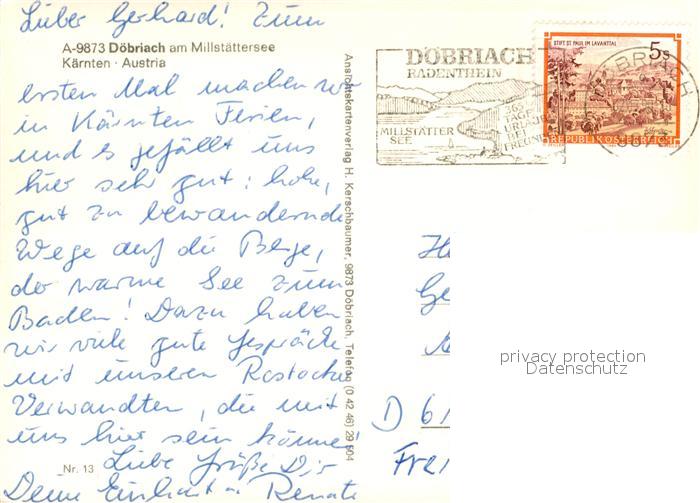 Lieber Gerhard! Zum
A-9873 Döbriach am Millstättersee
Kärnten · Austria
ersten Mal machen wir
in Kärnten Ferien,
und es gefällt uns
hier sehr gut: hohe,
gut zu bewandernde
Wege auf die Berge,
der warme See zum
Baden! Dazu haben
wir viele gute Gespräche
mit unseren Rostocker
Verwandten, die mit
uns hier sein können!
Nr. 13
Liebe Grüße Dir
Deine Einhart u. Renate
Ansichtskartenverlag H. Kerschbaumer, 9873 Döbriach, Telefon (0 42 46) 29 504
DÖBRIACH
RADENTHEIN
365
TAGE
URLAUB
BEI
FREUNDEN
MILLSTÄTTER
SEE
STIFT ST. PAUL IM LAVANTTAL
5 S
REPUBLIK ÖSTERREICH
privacy protection
Datenschutz
D 61
Frei